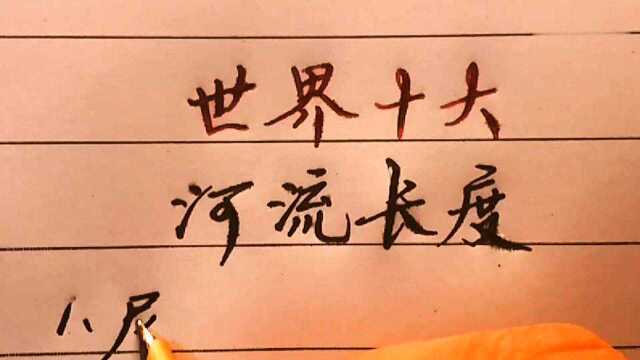 世界十大
河流长度
1、尼